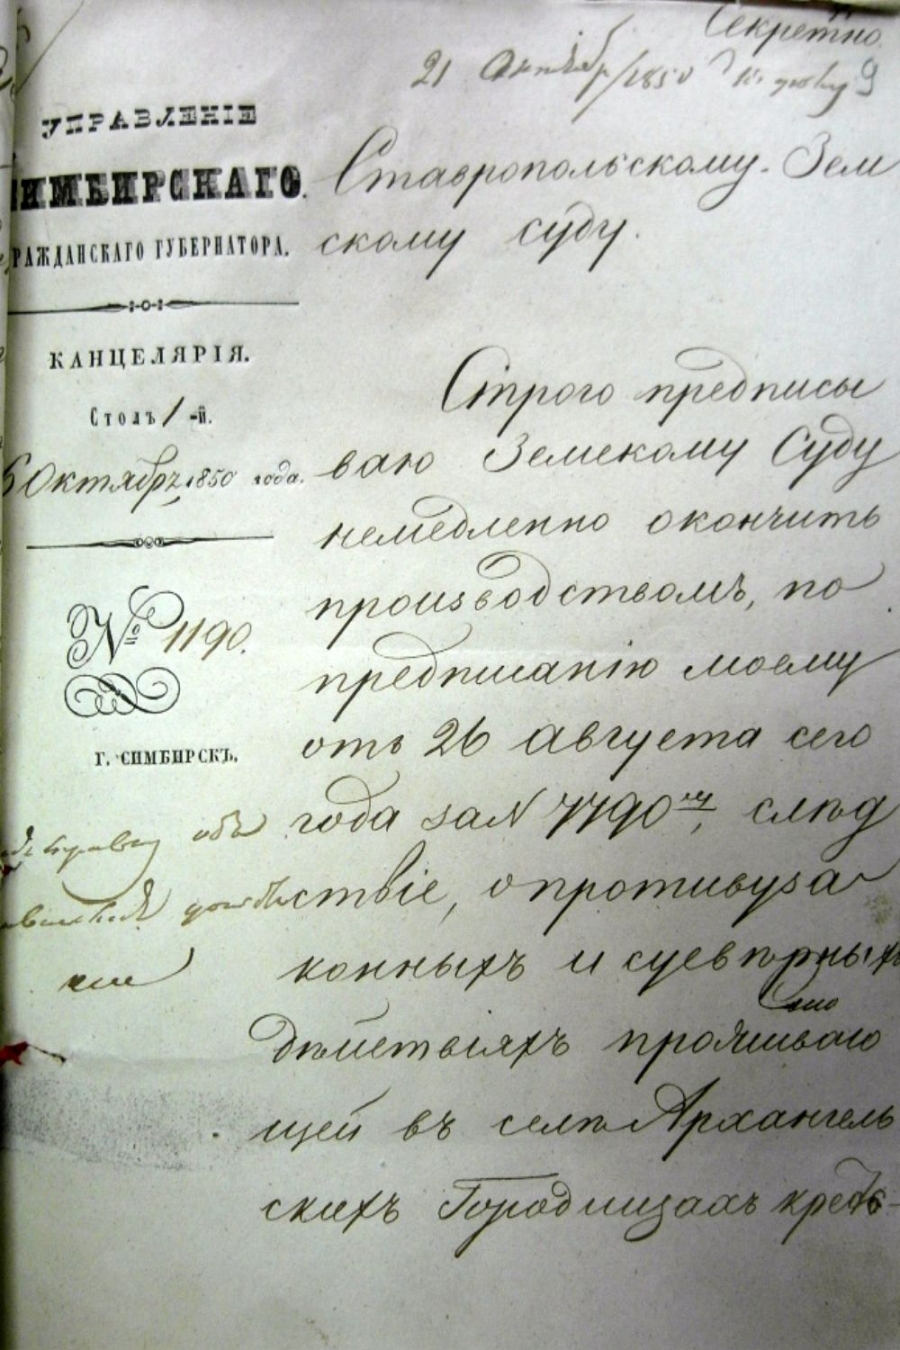 Секретно
9
21 Октября 1850
УПРАВЛЕНІЕ
СИМБИРСКАГО
ГРАЖДАНСКАГО ГУБЕРНАТОРА.
КАНЦЕЛЯРІЯ.
Столъ 1-й.
Октября 1850 года.
№ 1190.
Г. СИМБИРСКЪ.
Ставропольскому Зем
скому суду.
Строго предписы
ваю Земскому Суду
немедленно окончить
производствомъ, по
предписанію моему
отъ 26 августа сего
года за № 7790, слѣд
ствіе, о противуза
конныхъ и суевѣрныхъ
дѣйствіяхъ проживаю
щей въ селѣ Архангель
скихъ Городищахъ